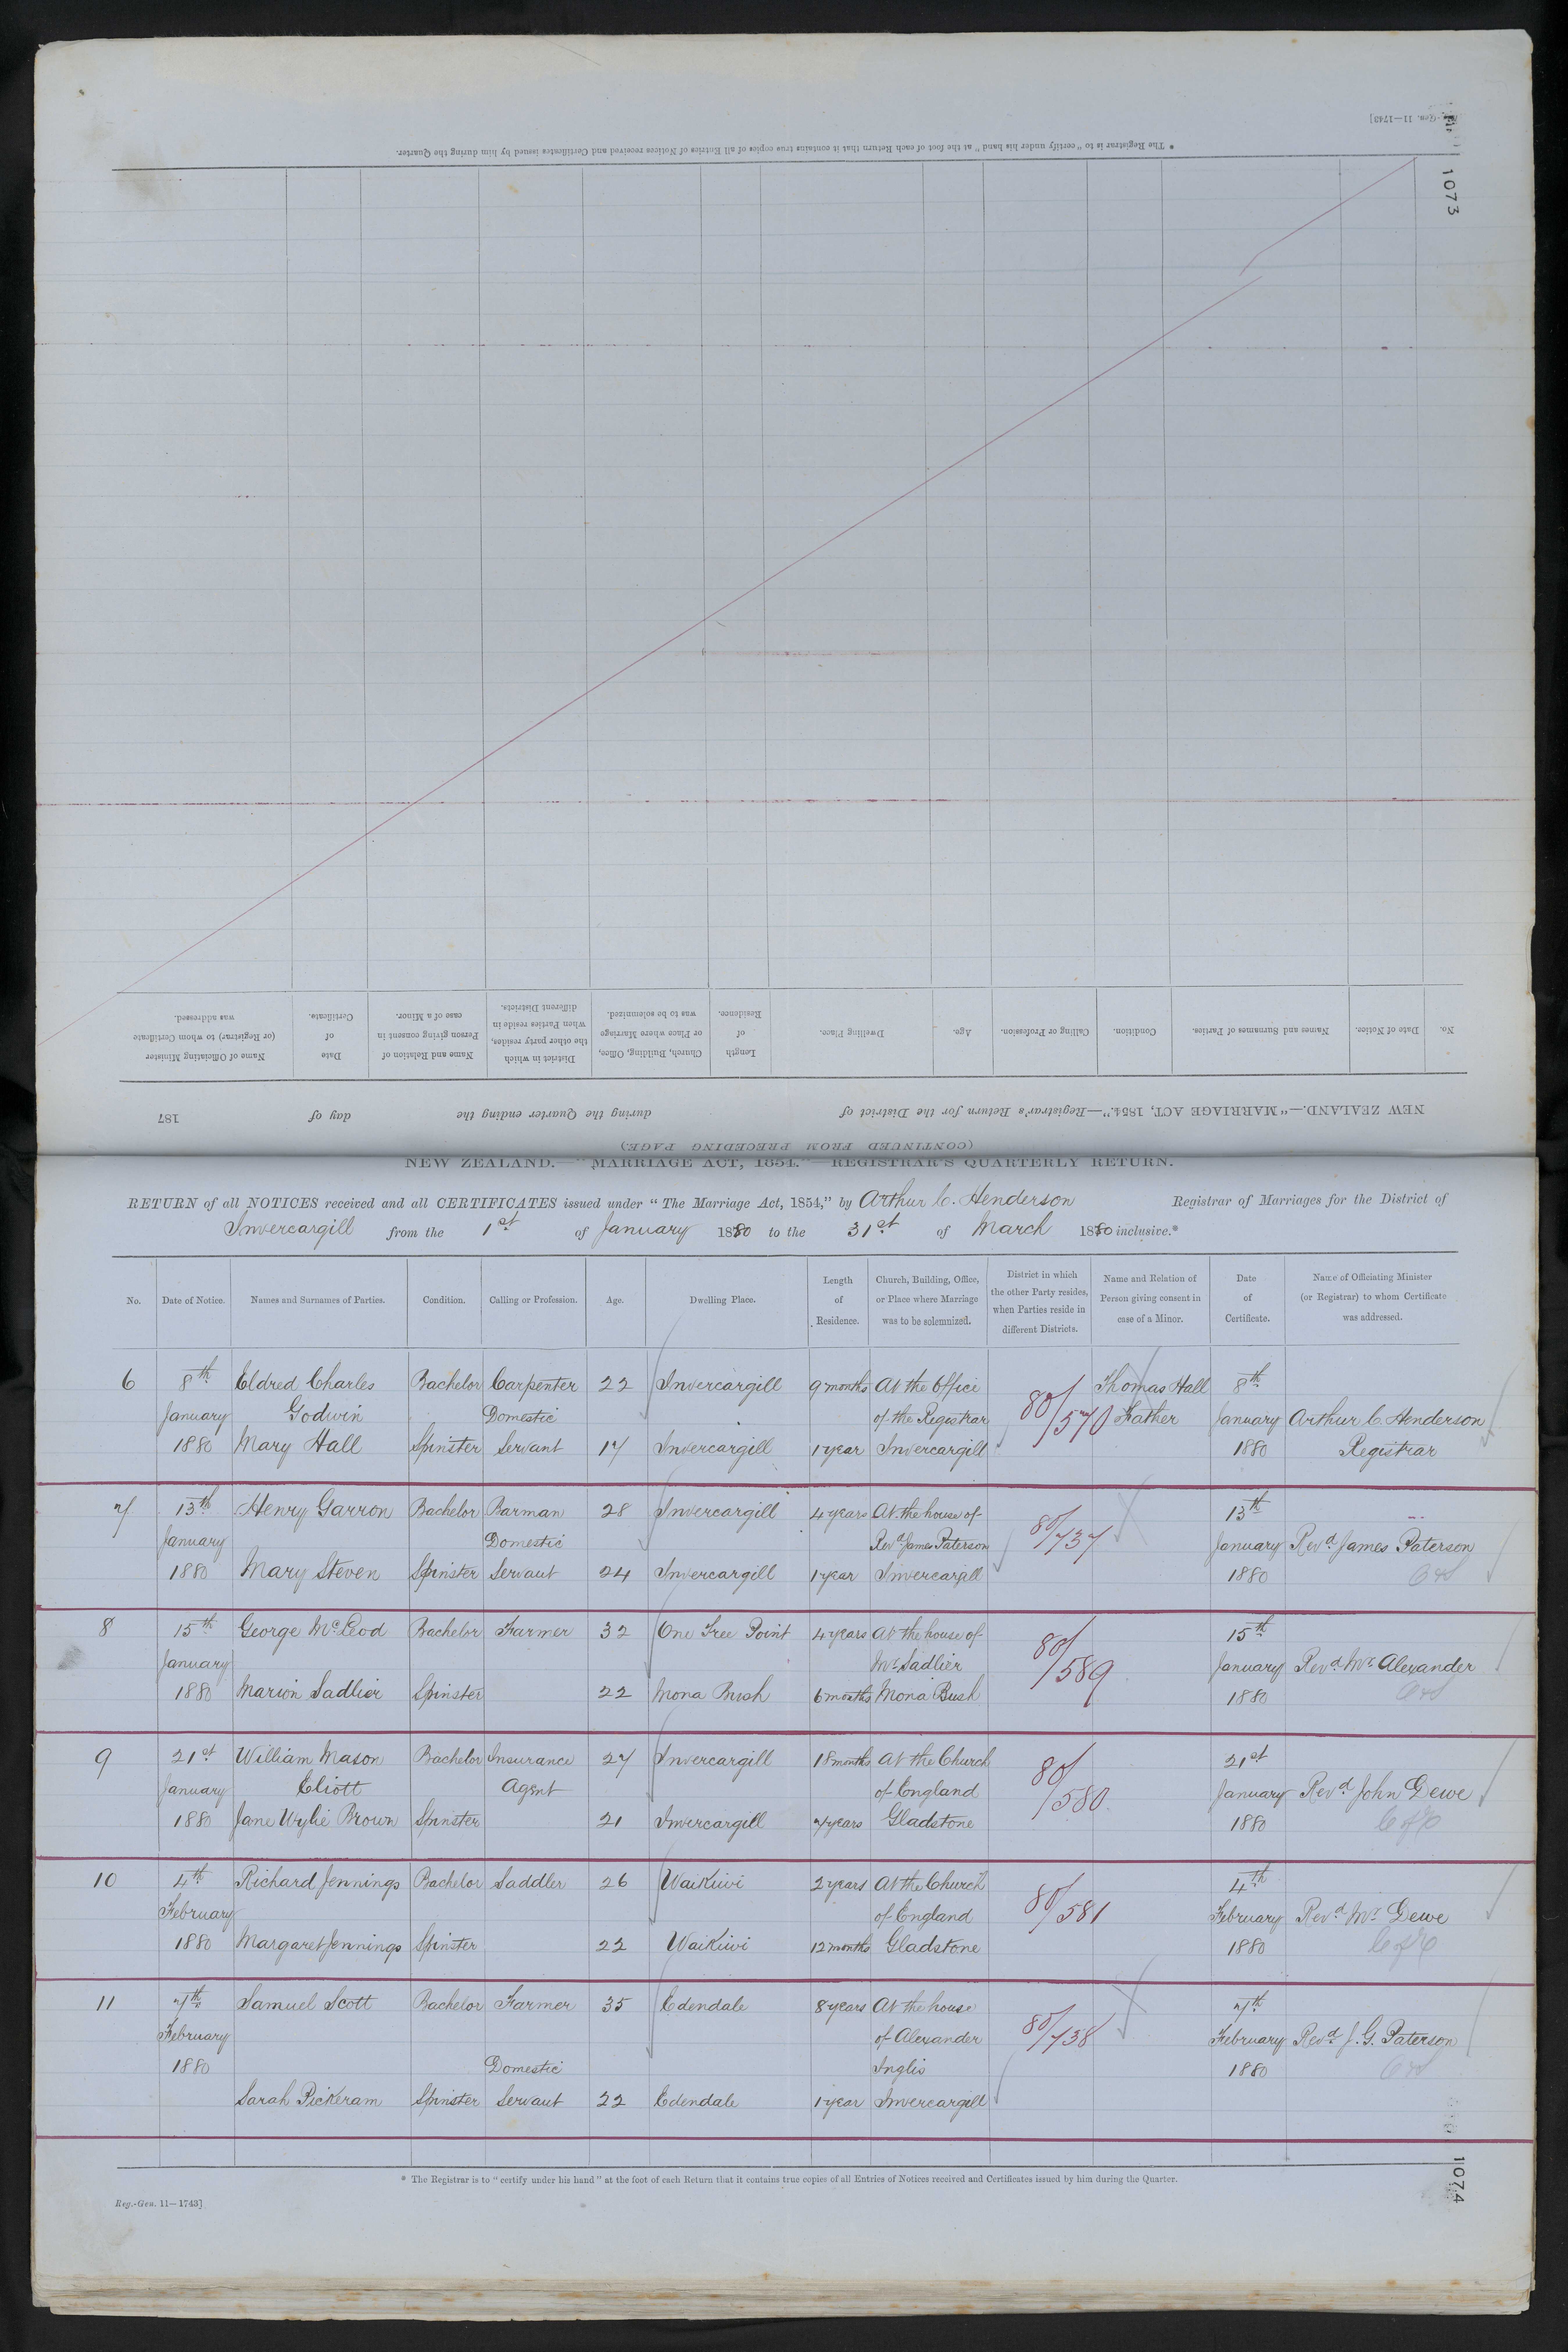 Reg.-Gen. 11—1743]
1073
* The Registrar is to "certify under his hand" at the foot of each Return that it contains true copies of all Entries of Notices received and Certificates issued by him during the Quarter.
No. Date of Notice. Names and Surnames of Parties. Condition. Calling or Profession. Age. Dwelling Place. Length of Residence. Church, Building, Office, or Place where Marriage was to be solemnized. District in which the other party resides, when Parties reside in different Districts. Name and Relation of Person giving consent in case of a Minor. Date of Certificate. Name of Officiating Minister (or Registrar) to whom Certificate was addressed.
NEW ZEALAND.—"MARRIAGE ACT, 1854."—Registrar's Return for the District of during the Quarter ending the day of 187
(CONTINUED FROM PRECEDING PAGE)
NEW ZEALAND.—"MARRIAGE ACT, 1854."—REGISTRAR'S QUARTERLY RETURN.
RETURN of all NOTICES received and all CERTIFICATES issued under "The Marriage Act, 1854," by Arthur C. Henderson Registrar of Marriages for the District of
Invercargill from the 1st of January 1880 to the 31st of March 1880 inclusive.*
No. Date of Notice. Names and Surnames of Parties. Condition. Calling or Profession. Age. Dwelling Place. Length of Residence. Church, Building, Office, or Place where Marriage was to be solemnized. District in which the other Party resides, when Parties reside in different Districts. Name and Relation of Person giving consent in case of a Minor. Date of Certificate. Name of Officiating Minister (or Registrar) to whom Certificate was addressed.
6 8th Eldred Charles Bachelor Carpenter 22 Invercargill 9 months At the Office 80/570 Thomas Hall 8th
January Godwin Domestic of the Registrar Father January Arthur C. Henderson
1880 Mary Hall Spinster Servant 17 Invercargill 1 year Invercargill 1880 Registrar
7 13th Henry Garron Bachelor Barman 28 Invercargill 4 years At the house of 80/737 13th
January Domestic Revd James Paterson January Revd James Paterson
1880 Mary Steven Spinster Servant 24 Invercargill 1 year Invercargill 1880
8 15th George McLeod Bachelor Farmer 32 One Tree Point 4 years At the house of 80/589 15th
January Mr Sadlier January Revd Mr Alexander
1880 Marion Sadlier Spinster 22 Mona Bush 6 months Mona Bush 1880
9 21st William Mason Bachelor Insurance 27 Invercargill 18 months At the Church 80/580 21st
January Eliott Agent of England January Revd John Dewe
1880 Jane Wylie Brown Spinster 21 Invercargill 7 years Gladstone 1880 C of E
10 4th Richard Jennings Bachelor Saddler 26 Waikiwi 2 years At the Church 80/581 4th
February of England February Revd Mr Dewe
1880 Margaret Jennings Spinster 22 Waikiwi 12 months Gladstone 1880 C of E
11 7th Samuel Scott Bachelor Farmer 35 Edendale 8 years At the house 80/738 7th
February of Alexander February Revd J. G. Paterson
1880 Domestic Inglis 1880
Sarah Pickeram Spinster Servant 22 Edendale 1 year Invercargill
* The Registrar is to "certify under his hand" at the foot of each Return that it contains true copies of all Entries of Notices received and Certificates issued by him during the Quarter.
Reg.-Gen. 11—1743]
1074